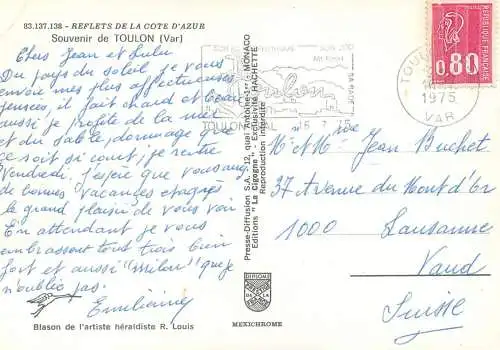 83.137.138 - REFLETS DE LA COTE D'AZUR
Souvenir de TOULON (Var)
Chers Jean et Lulu
Du pays du soleil je vous
envoie mes plus affectueuses
pensées, il fait chaud et beau
aussi je profite de la mer
et du sable, dommage que
ce soit si court, je rentre
Vendredi. J'espère que vous avez
de bonnes vacances et
le grand plaisir de vous voir
En attendant je vous
embrassent tout trois bien
fort et aussi "milou" que je
n'oublie pas.
Emilienne
Blason de l'artiste héraldiste R. Louis
Presse-Diffusion S.A. - 12, quai Antoine-1er - MONACO
Editions "La Cigogne" - Exclusivité HACHETTE
Reproduction interdite
DIPLOME
MEXICHROME
SON
Toulon
TOULON
15 - 7 75
REPUBLIQUE FRANCAISE
0,80
POSTES
TOULON
1975
VAR
Mr et Mme Jean Buchet
37 Avenue du Mont d'Or
1000 Lausanne
Vaud
Suisse